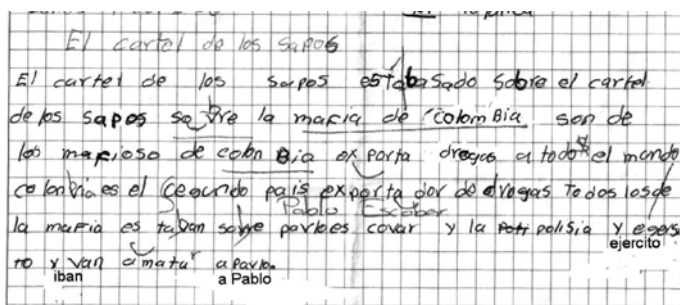 El cartel de los sapos
El cartel de los sapos estabasado sobre el cartel
de los sapos sobre la mafia de colombia son de
los mafioso de colonbia exporta drogas a todos el mondo
colonbia es el segundo pais exportador de drogas Todos los de
Pablo Escober
la mafia es taban sobre parbloes covar y la polisia y egersi
ejercito
to y van a matar a Pavlo.
iban a Pablo